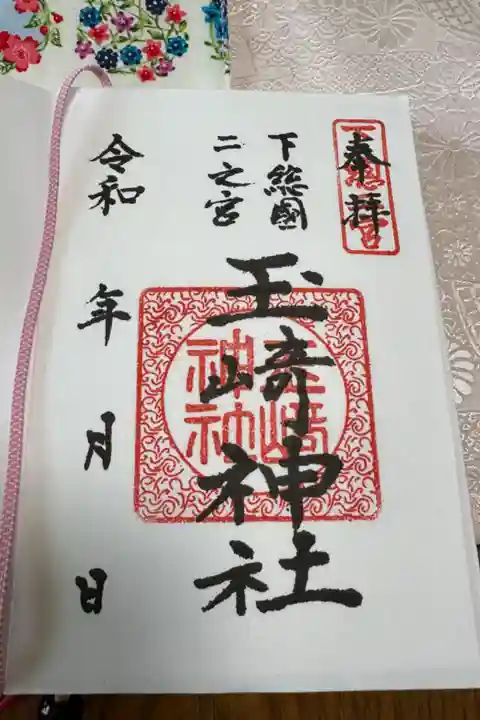 奉拝
下総國
二之宮
玉崎神社
玉崎神社
令和 年 月 日